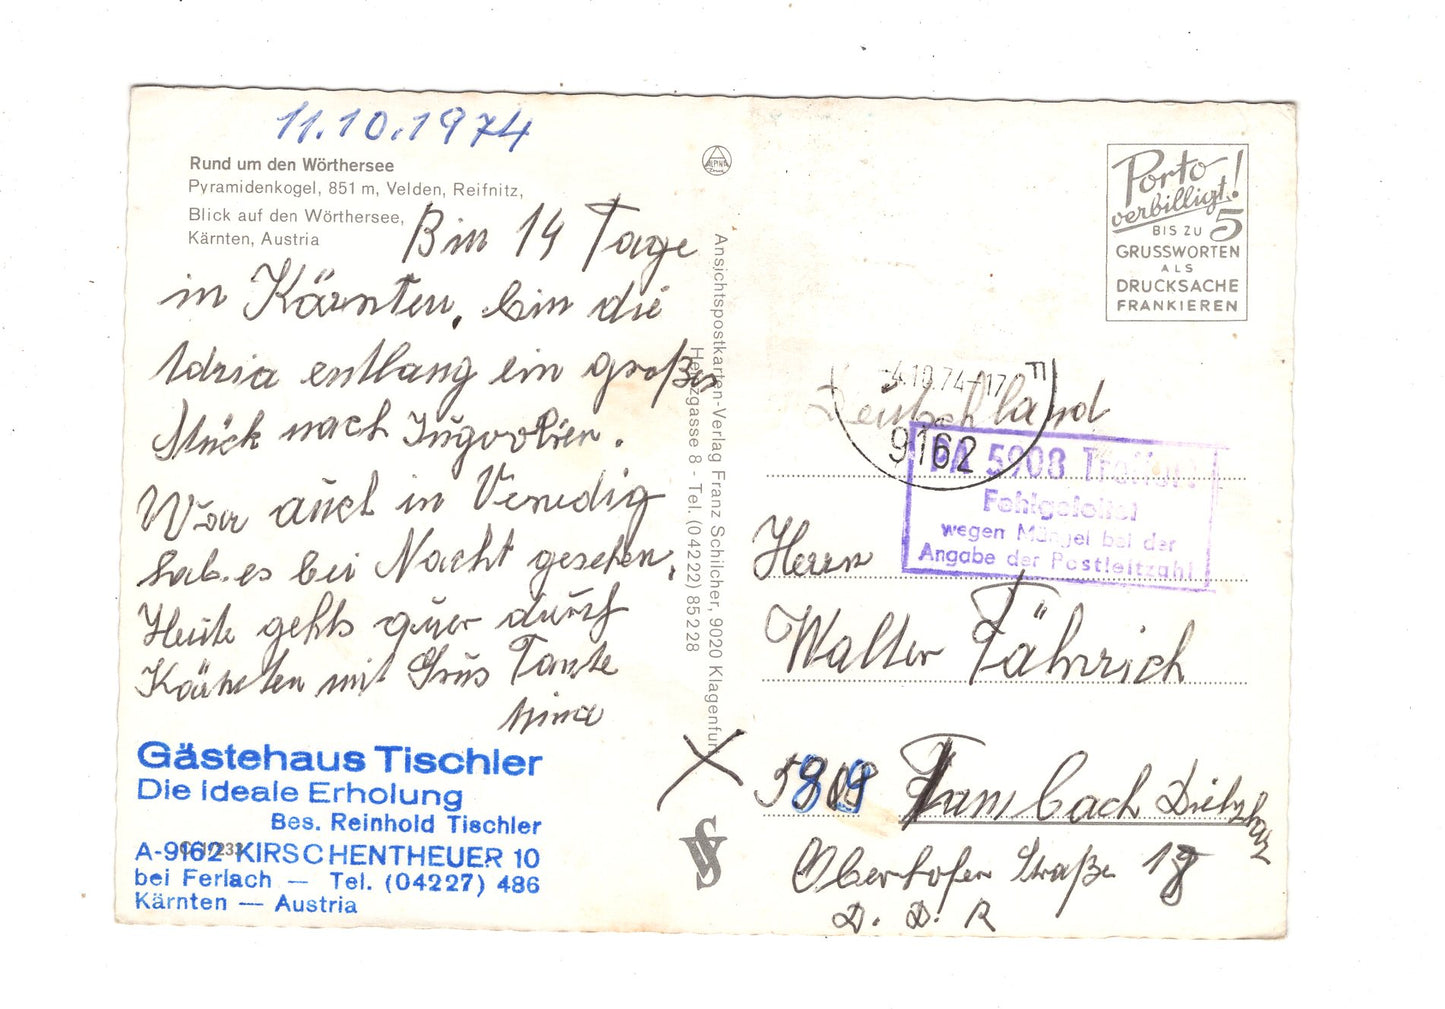 11.10.1974
Rund um den Wörthersee
Pyramidenkogel, 851 m, Velden, Reifnitz,
Blick auf den Wörthersee,
Kärnten, Austria
Bin 14 Tage
in Kärnten, bin die
Adria entlang ein großes
Stück nach Jugoolien.
War auch in Venedig
hab. es bei Nacht gesehen,
Heute gehts quer durch
Kärnten mit Grus Tante
Gästehaus Tischler
Die ideale Erholung
Bes. Reinhold Tischler
A-9162 KIRSCHENTHEUER 10
bei Ferlach — Tel. (04227) 486
Kärnten — Austria
ALPINA
Ansichtspostkarten-Verlag Franz Schilcher, 9020 Klagenfurt
Herzgasse 8 - Tel. (04222) 85228
Porto
verbilligt!
BIS ZU 5
GRUSSWORTEN
ALS
DRUCKSACHE
FRANKIEREN
-4.10.74-17
9162
Deutschland
PA 5908 Treffurt
Fehlgeleitet
wegen Mängel bei der
Angabe der Postleitzahl
Herrn
Walter Fähnrich
Tambach Dietzharz
Oberhofer Straße
D. D. R